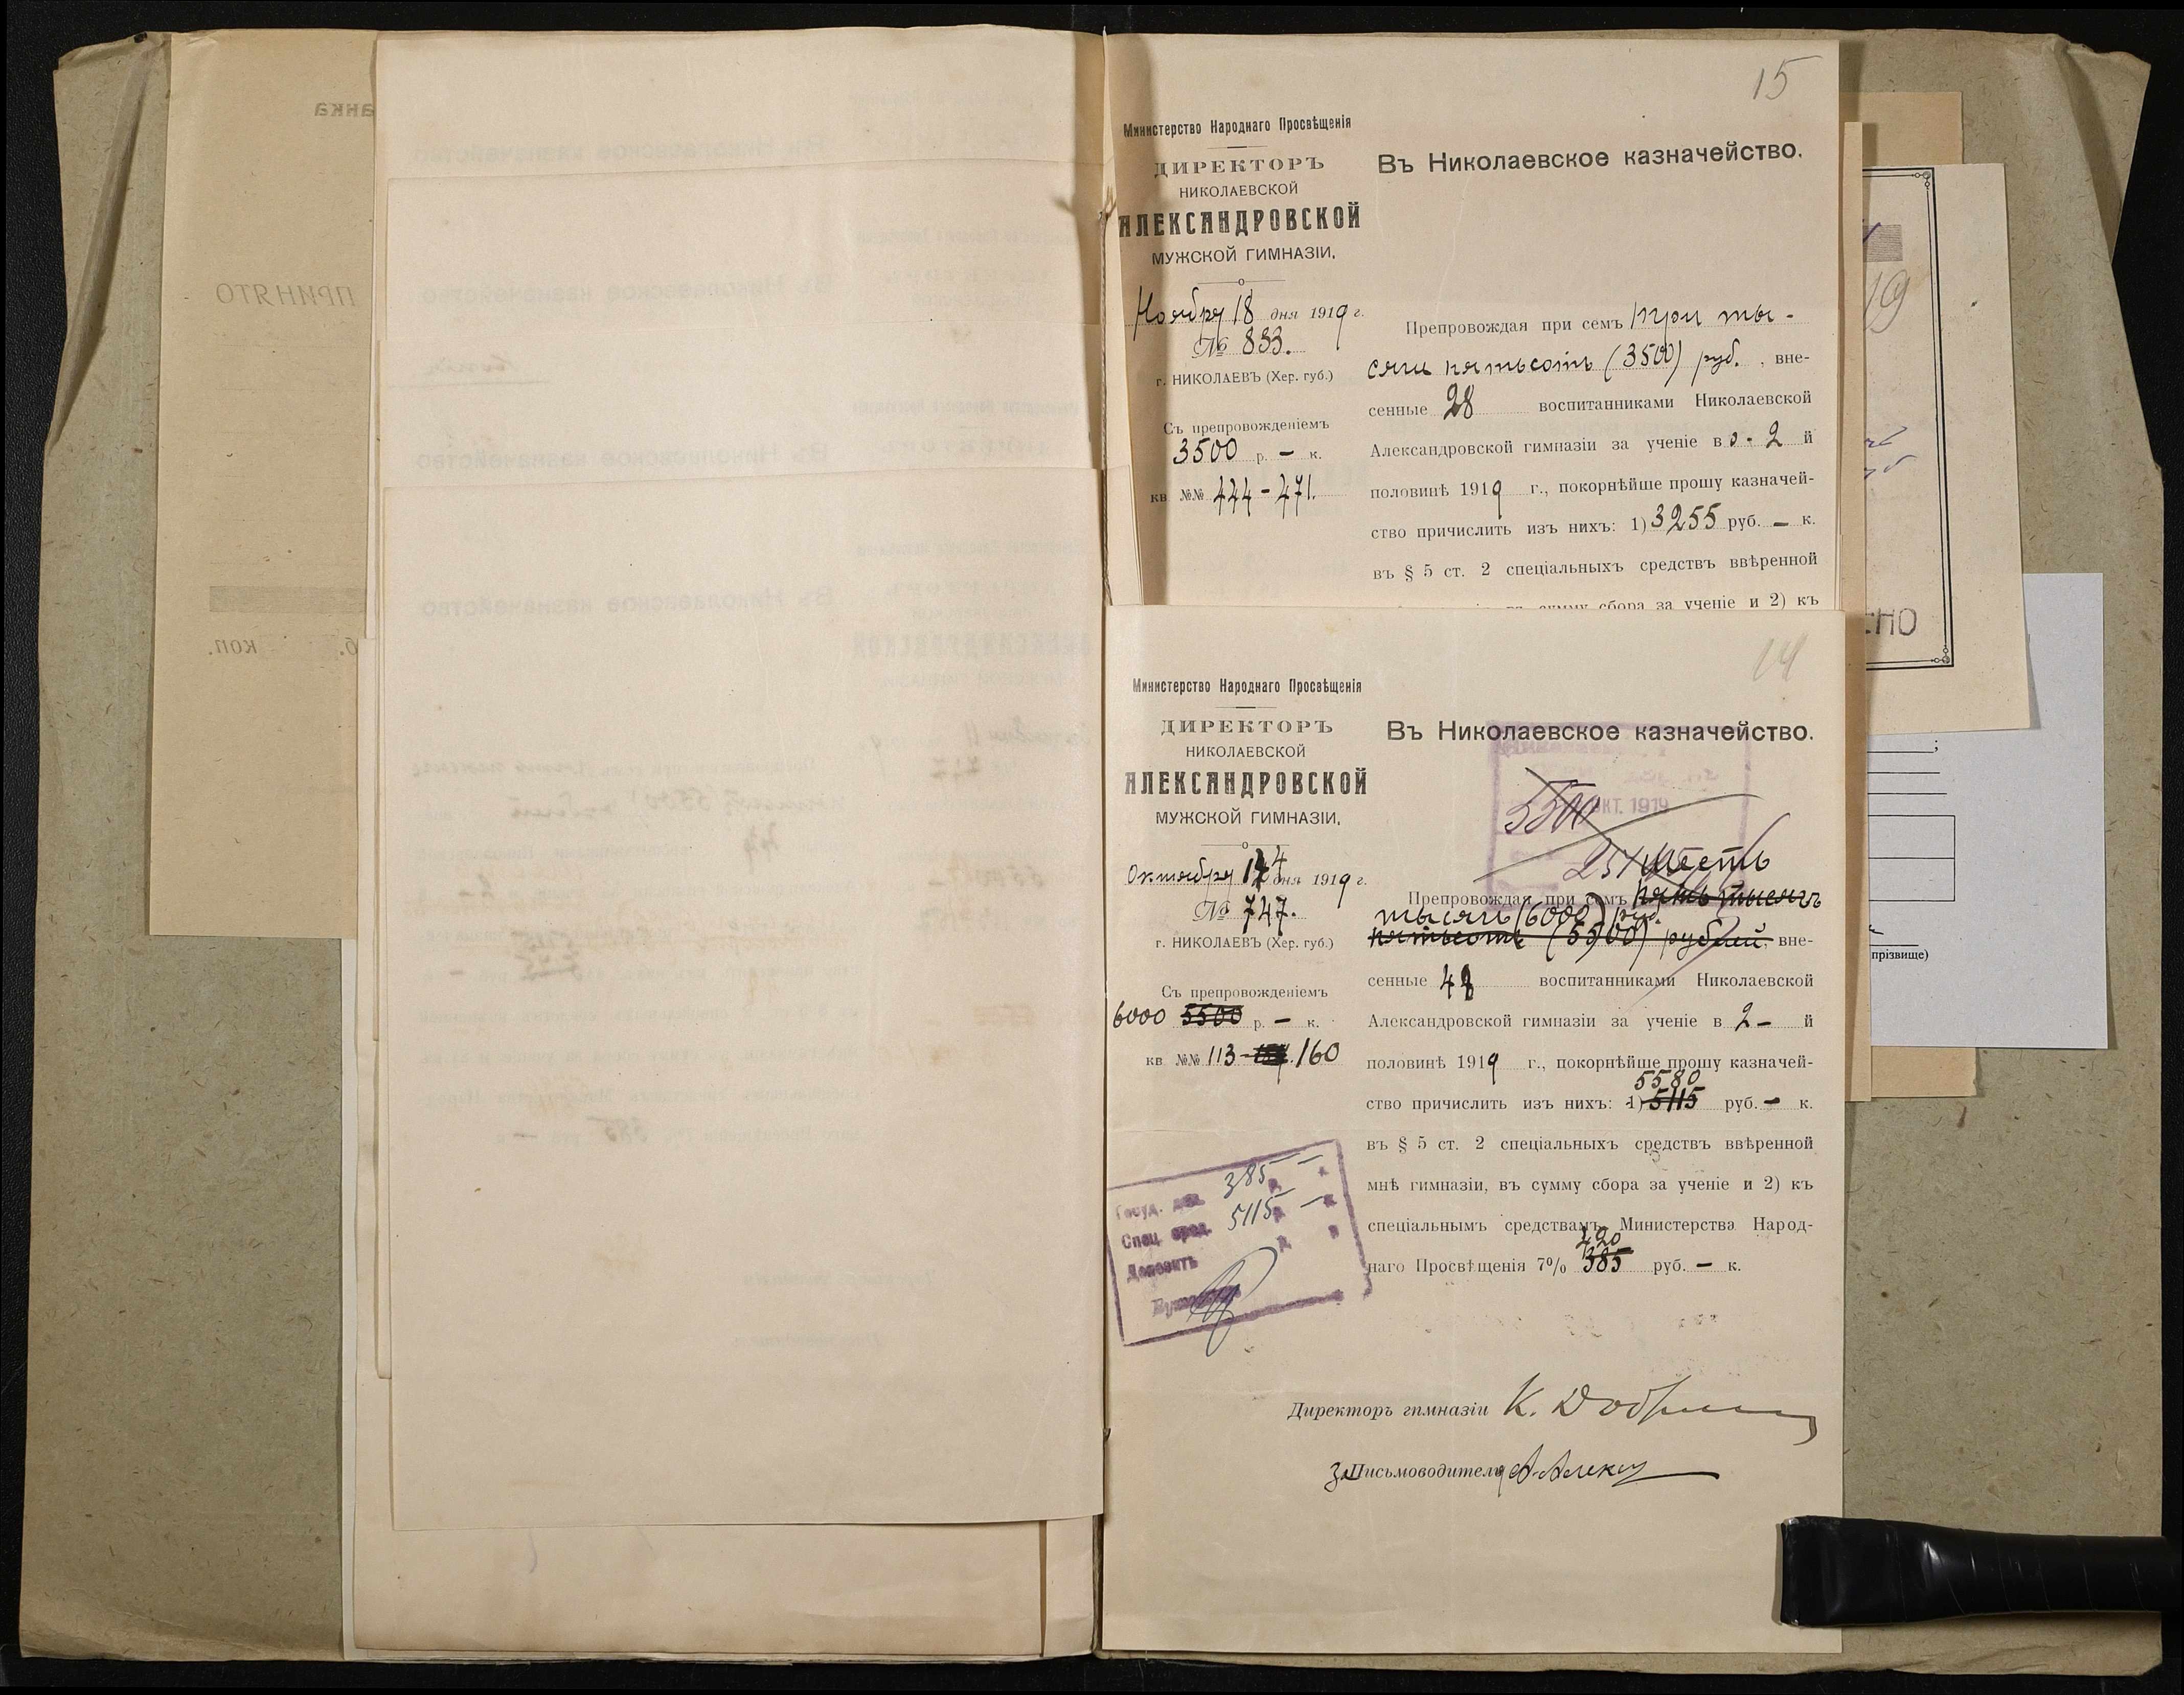 15
Министерство Народнаго Просвѣщенія
ДИРЕКТОРЪ
НИКОЛАЕВСКОЙ
АЛЕКСАНДРОВСКОЙ
МУЖСКОЙ ГИМНАЗІИ.
Ноября 18 дня 1919 г.
№ 833.
г. НИКОЛАЕВЪ (Хер. губ.)
Съ препровожденіемъ
3500 р. – к.
кв №№ 444 - 471.
Въ Николаевское казначейство.
Препровождая при семъ три ты-
сячи пятьсотъ (3500) руб., вне-
сенные 28 воспитанниками Николаевской
Александровской гимназіи за ученіе в о - 2 й
половинѣ 1919 г., покорнѣйше прошу казначей-
ство причислить изъ нихъ: 1) 3255 руб. – к.
въ § 5 ст. 2 спеціальныхъ средствъ ввѣренной
сумму сбора за ученіе и 2) къ
14
Министерство Народнаго Просвѣщенія
ДИРЕКТОРЪ
НИКОЛАЕВСКОЙ
АЛЕКСАНДРОВСКОЙ
МУЖСКОЙ ГИМНАЗІИ.
Октября 14 дня 1919 г.
№ 747.
г. НИКОЛАЕВЪ (Хер. губ.)
Съ препровожденіемъ
6000 5500 р. – к.
кв №№ 113 - 160
Въ Николаевское казначейство.
ОКТ. 1919
5500
шесть
Препровождая при семъ пять тысячъ
тысячъ (6000) руб.
пятьсотъ (5500) рублей, вне-
сенные 48 воспитанниками Николаевской
Александровской гимназіи за ученіе в 2 – й
половинѣ 1919 г., покорнѣйше прошу казначей-
5580
ство причислить изъ нихъ: 1) 5115 руб. – к.
въ § 5 ст. 2 спеціальныхъ средствъ ввѣренной
мнѣ гимназіи, въ сумму сбора за ученіе и 2) къ
спеціальнымъ средствамъ Министерства Народ-
420
наго Просвѣщенія 7% 385 руб. – к.
385 –
Спец. сред. 5115 –
Депозитъ
Директоръ гимназіи К.
За Письмоводителя
ЕНО
прізвище)
ПРИНЯТО
коп.